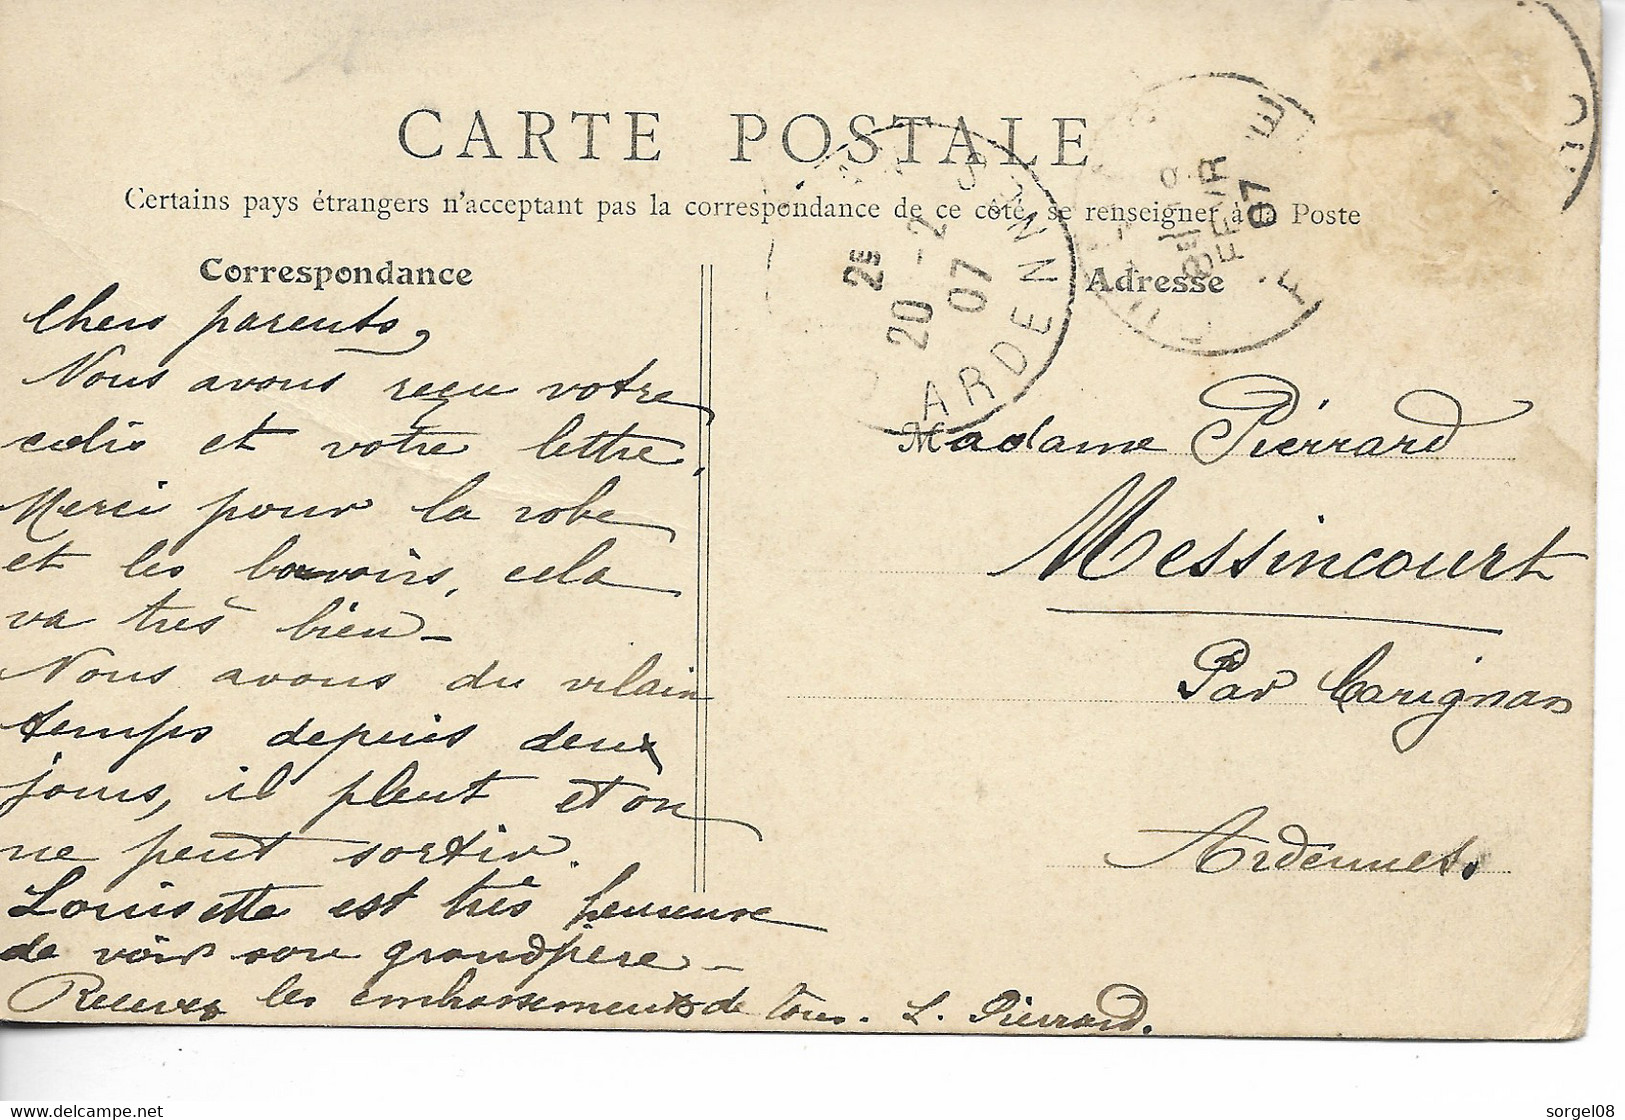 CARTE POSTALE
Certains pays étrangers n'acceptent pas la correspondance de ce côté, se renseigner à la Poste
Correspondance
Chers parents,
Nous avons reçu votre
colis et votre lettre.
Merci pour la robe
et les bavoirs, cela
va très bien –
Nous avons du vilain
temps depuis deux
jours, il pleut et on
ne peut sortir.
Louisette est très heureuse
de voir son grandpère –
Recevez les embrassements de tous. L. Piérrard.
Adresse
Madame Piérrard
Messincourt
Par Carignan
Ardennes.
2E
20 - 2
07
ARDENN
FEVR
07
E
www.delcampe.net
sorgel08